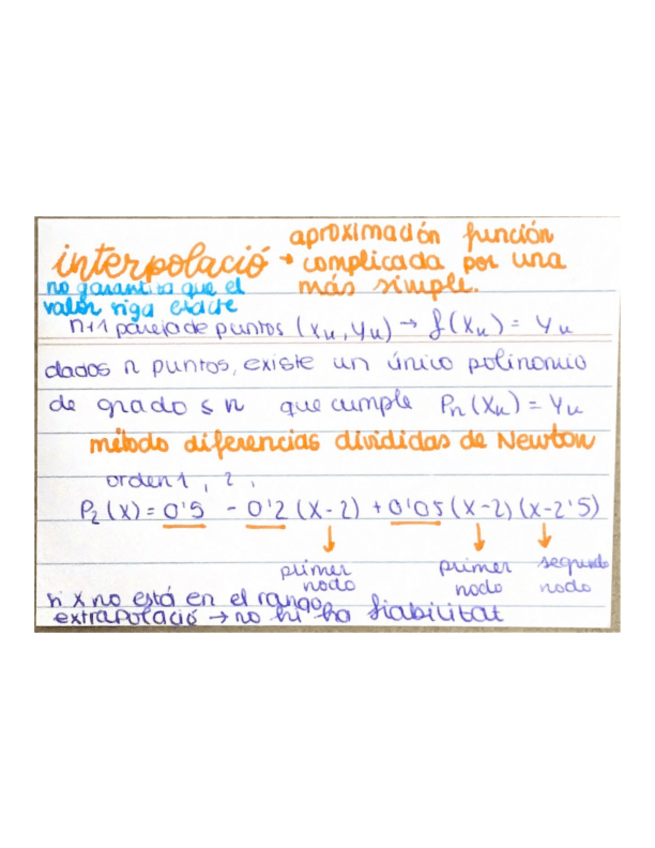 interpolació → aproximación función
complicada por una
más simple.
no garantitza que el
valor siga exacte
n+1 pareja de puntos (xₖ, yₖ) → f(xₖ) = yₖ
dados n puntos, existe un único polinomio
de grado ≤ n que cumple Pₙ(xₖ) = yₖ
método diferencias divididas de Newton
orden 1, 2,
P₂(x) = 0'5 - 0'2 (x-2) + 0'05 (x-2) (x-2'5)
↓ ↓ ↓
primer nodo primer nodo segundo nodo
si x no está en el rango
extrapolació → no hi ha fiabilitat